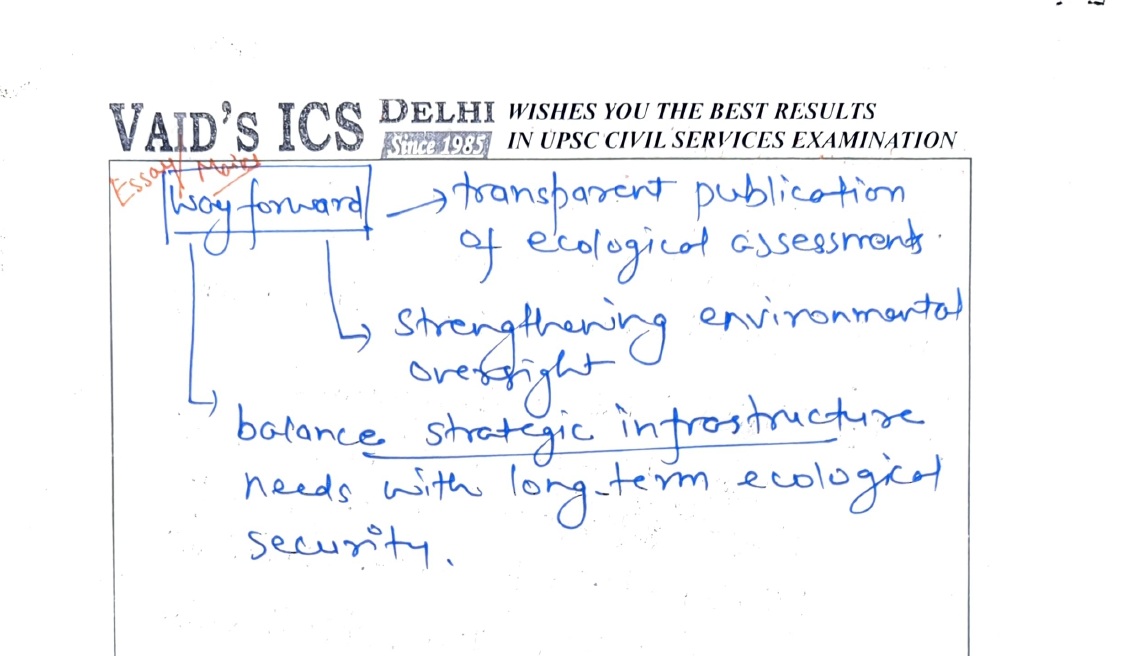 VAID'S ICS DELHI WISHES YOU THE BEST RESULTS
Since 1985 IN UPSC CIVIL SERVICES EXAMINATION
Essay Mains
Way forward → transparent publication
of ecological assessments.
→ strengthening environmental
oversight
→ balance strategic infrastructure
needs with long-term ecological
security.